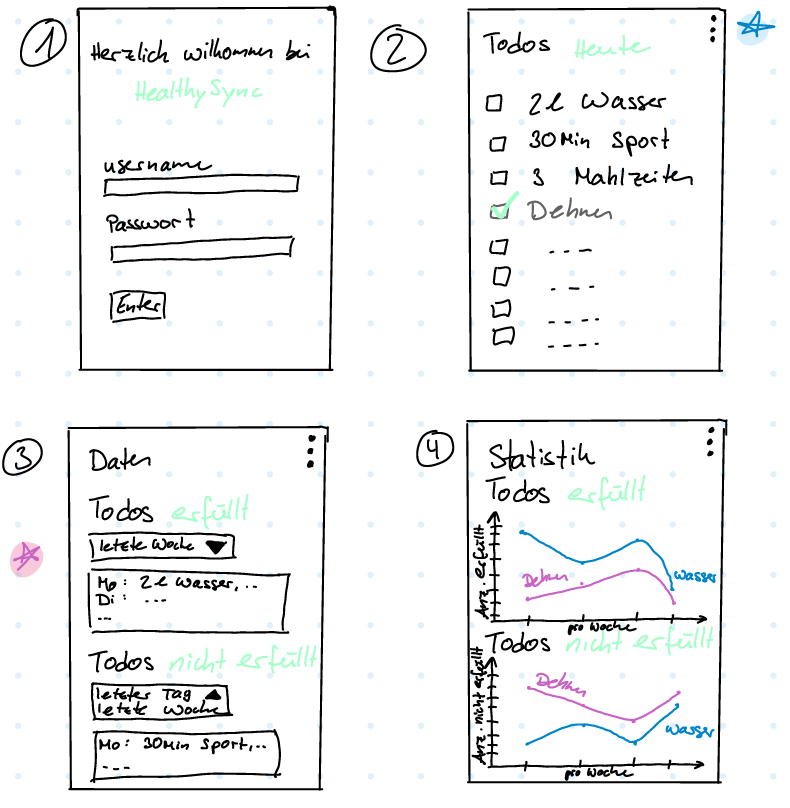 1
Herzlich willkommen bei
HealthySync
username
Passwort
Enter
2
Todos Heute
2l Wasser
30Min Sport
3 Mahlzeiten
Dehnen
3
Daten
Todos erfüllt
letzte Woche
Mo: 2l Wasser,..
Di: ---
---
Todos nicht erfüllt
letzter Tag
letzte Woche
Mo: 30Min Sport,..
---
4
Statistik
Todos erfüllt
Anz. erfüllt
Dehnen
Wasser
pro Woche
Todos nicht erfüllt
Anz. nicht erfüllt
Dehnen
Wasser
pro Woche